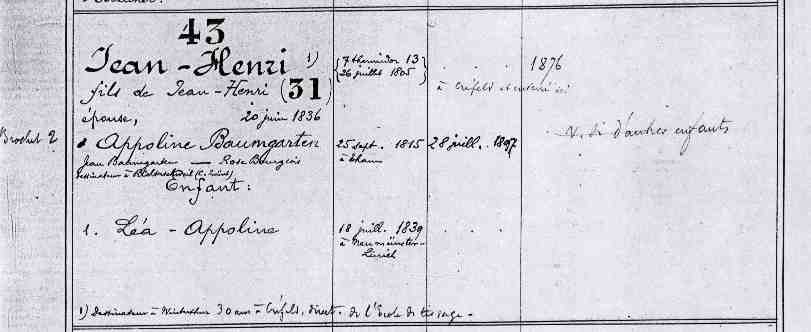 43
Jean-Henri 1)
fils de Jean-Henri (31)
épouse, 20 juin 1836
Appoline Baumgarten
Jean Baumgarten — Rose Bourgeois
Dessinateur à
Enfant:
1. Léa-Appoline
7 thermidor 13
26 juillet 1805
1876
à Créfeld et enterré ici
25 sept. 1815
à Thann
28 juill. 1897
V. si d'autres enfants
18 juill. 1839
à Neumünster-
Zürich
Brochet 2
1) Dessinateur à Winterthur 30 ans à Créfeld, direct. de l'École de tissage -